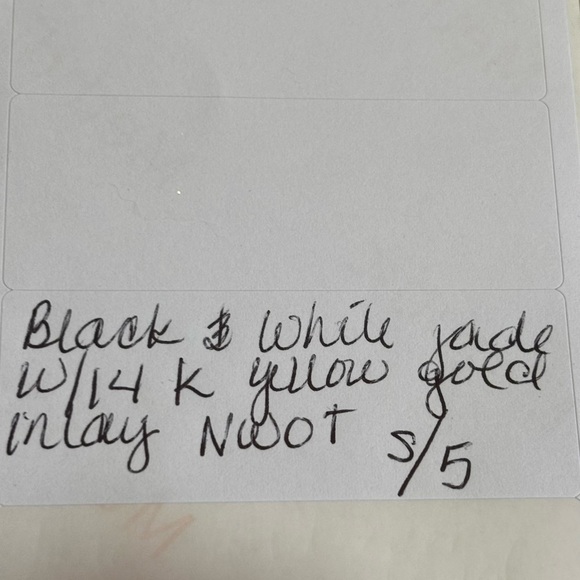 Black & White jade
W/14 K yellow gold
inlay NWOT S/5